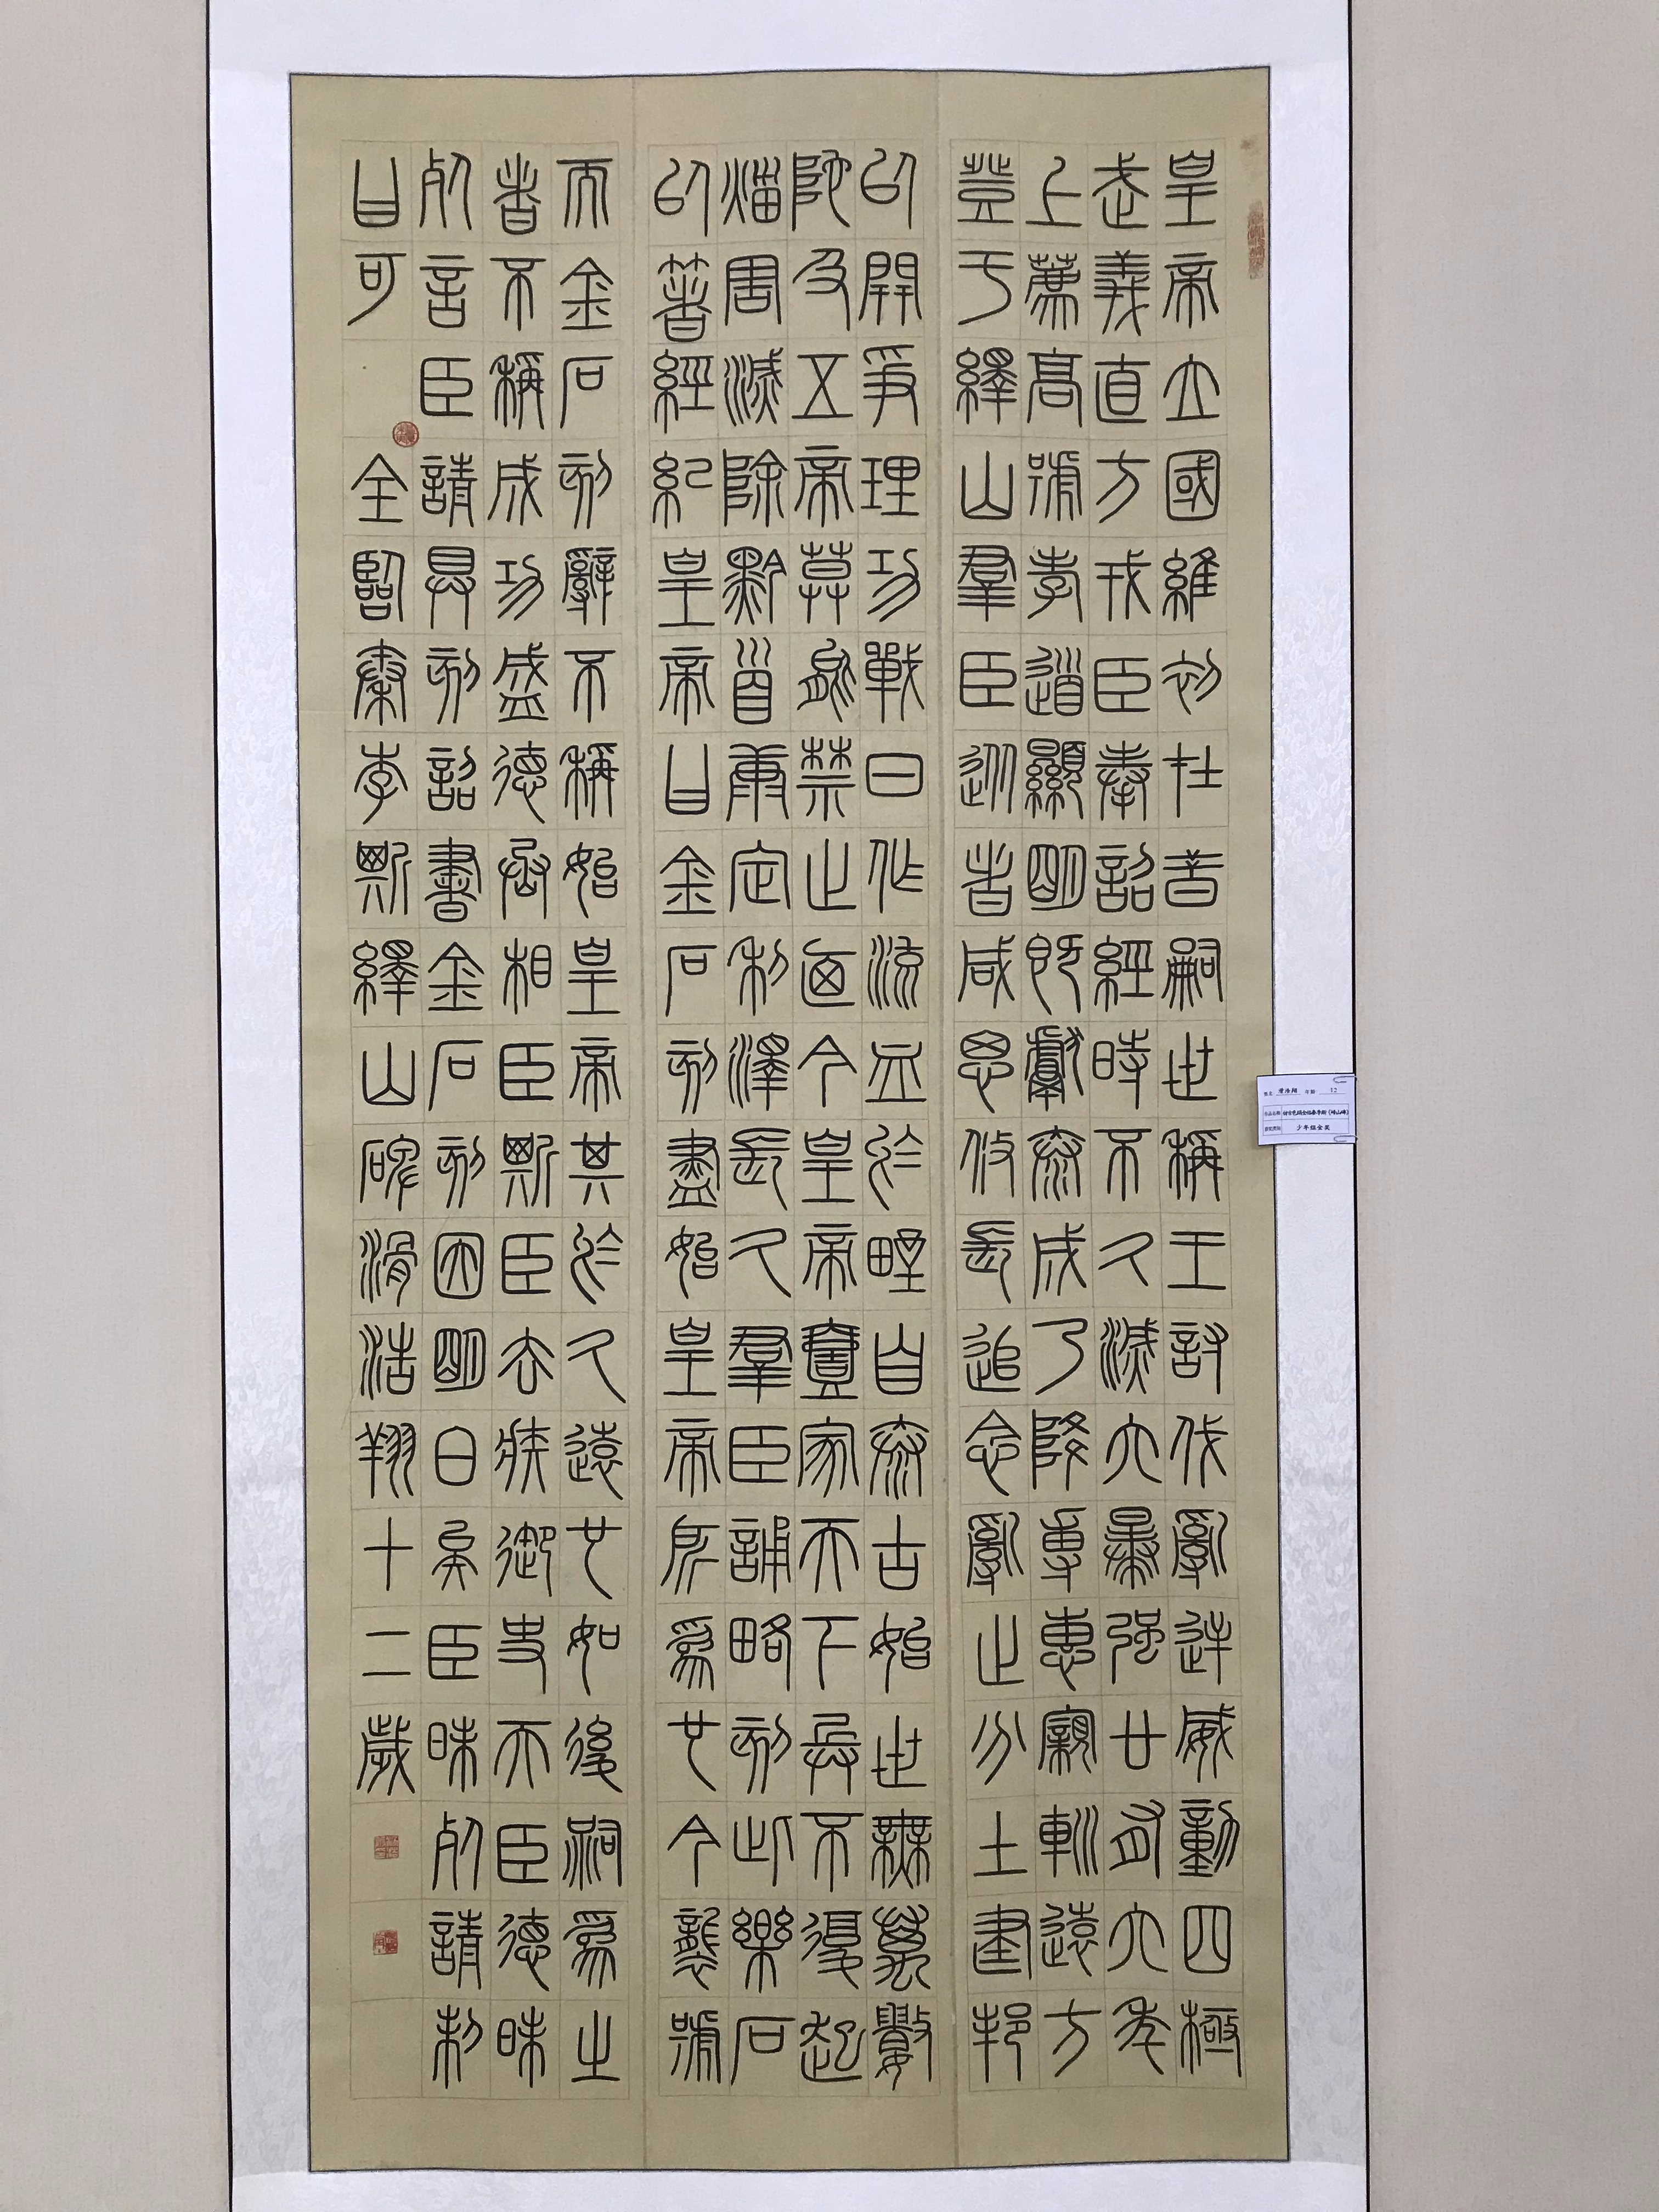 皇帝立國維初在昔嗣世稱王討伐亂逆威動四極
武義直方戎臣奉詔經時不久滅六暴強廿有六年
上薦高號孝道顯明既獻泰成乃降專惠寴輶遠方
登于繹山羣臣從者咸思攸長追念亂世分土建邦
以開爭理功戰日作流血於野自泰古始世無萬數
陀及五帝莫能禁止迺今皇帝壹家天下兵不復起
災害滅除黔首康定利澤長久羣臣誦略刻此樂石
以著經紀皇帝曰金石刻盡始皇帝所為也今襲號
而金石刻辭不稱始皇帝其於久遠也如後嗣為之
者不稱成功盛德丞相臣斯臣去疾御史夫臣德昧
死言臣請具刻詔書金石刻因明白矣臣昧死請制
曰可 全臨秦李斯繹山碑滑浩翔十二歲
姓名 滑浩翔 年齡 12
作品名稱 全臨秦李斯《嶧山碑》
少年組金獎